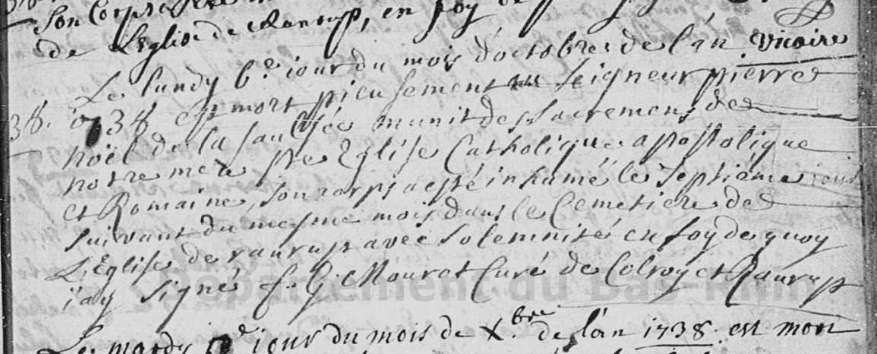 Son Corps
de L'Eglise de Ranrup, en foy de
Vicaire
Le lundy 6.e jour du mois d'octobre de l'an
38. 1738 est mort pieusement Seigneur pierre
noël de la saulsée munit des sacremens de
notre mere Ste Eglise Catholique apostolique
et Romaine, son corps a esté inhumé le septième jour
suivant du mesme mois dans le Cemetiere de
L'Eglise de ranrup avec solemnité en foy de quoy
j'ay signé f. G. Mouret Curé de Colroy et Ranrup
Département du Bas-Rhin
Le mardy jour du mois de Xbre de l'an 1738 est mort